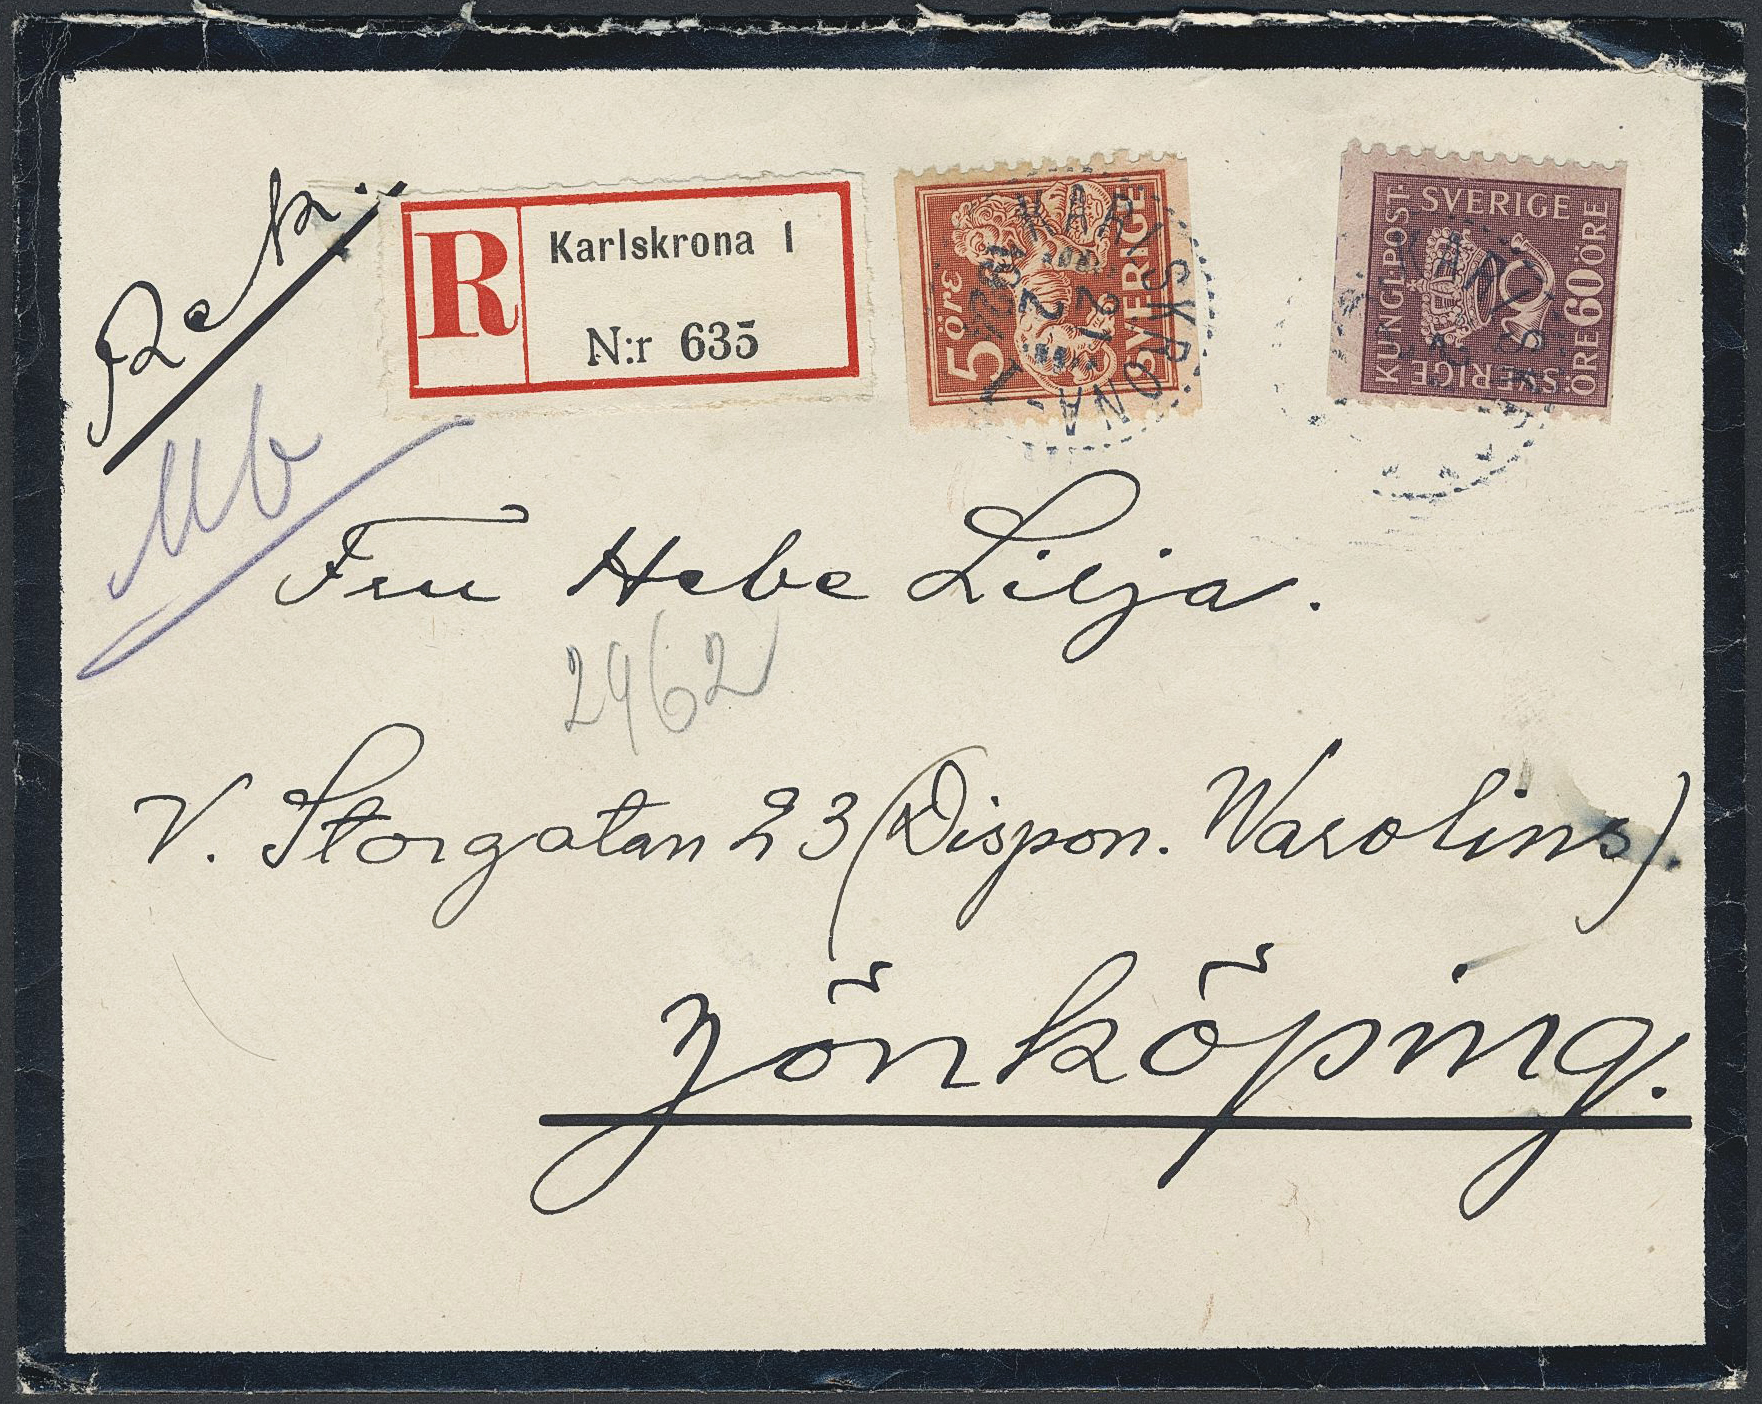 Rek.
R
Karlskrona 1
N:r 635
5 ÖRE
SVERIGE
KARLSKRONA
SVERIGE
KUNGL. POST.
SVERIGE
ÖRE 60 ÖRE
Fru Hebe Lilja.
2962
V. Storgatan 23 (Dispon. Warolins).
Jönköping.